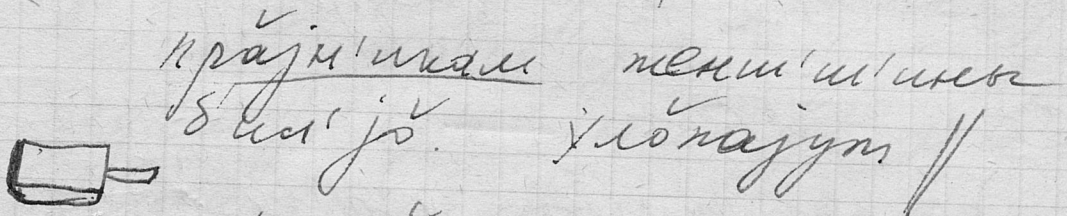 прӑjн'икам женш'ш'ины
б'ил'jо̆. хло̆паjут //